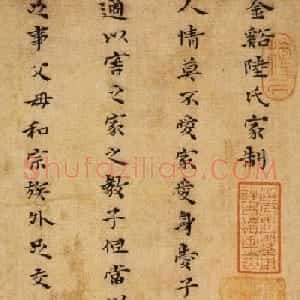 金谿陸氏家制
人情莫不愛家愛身愛子
適以害之家之教子但當以
之事父母和宗族外足交
Shufaziliao.com